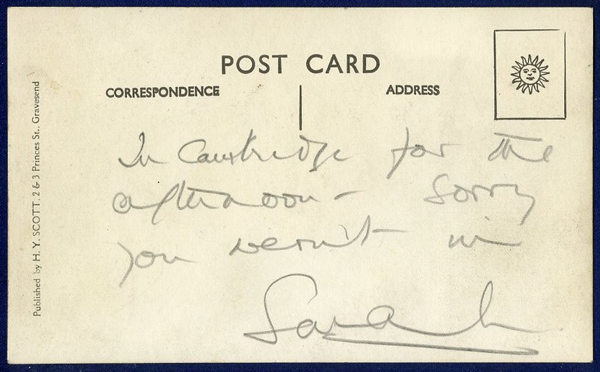 POST CARD
CORRESPONDENCE
ADDRESS
In Cambridge for the
afternoon - Sorry
you weren't in
Sarah
Published by H. Y. SCOTT. 2 & 3 Princes St., Gravesend